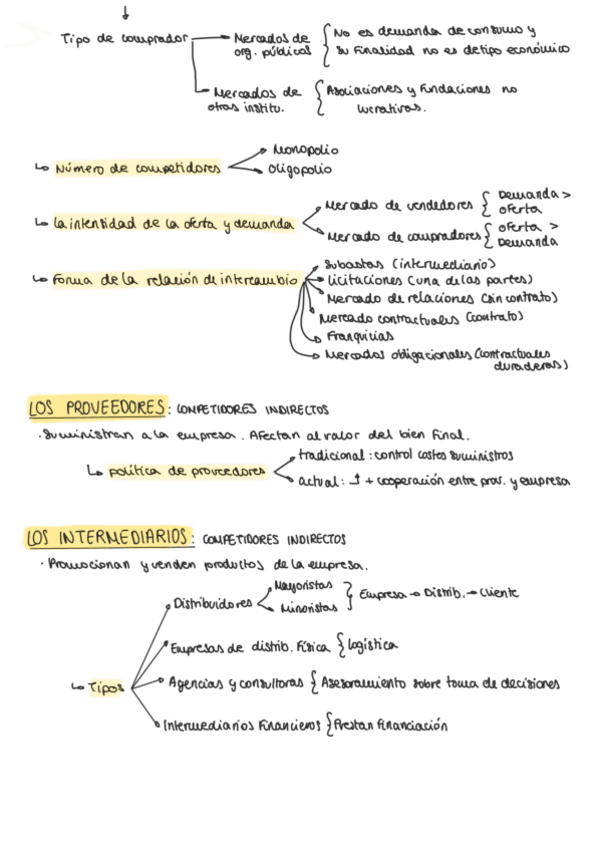 Tipo de comprador
Mercados de org. públicos
No es demanda de consumo y
su finalidad no es de tipo económico
Mercados de otras institu.
Asociaciones y fundaciones no
lucrativas.
↳ Número de competidores
Monopolio
Oligopolio
↳ La intensidad de la oferta y demanda
Mercado de vendedores { Demanda >
oferta
Mercado de compradores { oferta >
Demanda
↳ Forma de la relación de intercambio
Subastas (intermediario)
Licitaciones (una de las partes)
Mercado de relaciones (sin contrato)
Mercado contractuales (contrato)
Franquicias
Mercados obligacionales (contractuales
duraderas)
LOS PROVEEDORES: COMPETIDORES INDIRECTOS
· Suministran a la empresa. Afectan al valor del bien final.
↳ política de proveedores
tradicional: control costes suministros
actual: ↑ + cooperación entre prov. y empresa
LOS INTERMEDIARIOS: COMPETIDORES INDIRECTOS
· Promocionan y venden productos de la empresa.
↳ Tipos
Distribuidores
Mayoristas
Minoristas
Empresa → Distrib. → Cliente
Empresas de distrib. Física { logística
Agencias y consultoras { Asesoramiento sobre toma de decisiones
Intermediarios Financieros { Prestan Financiación